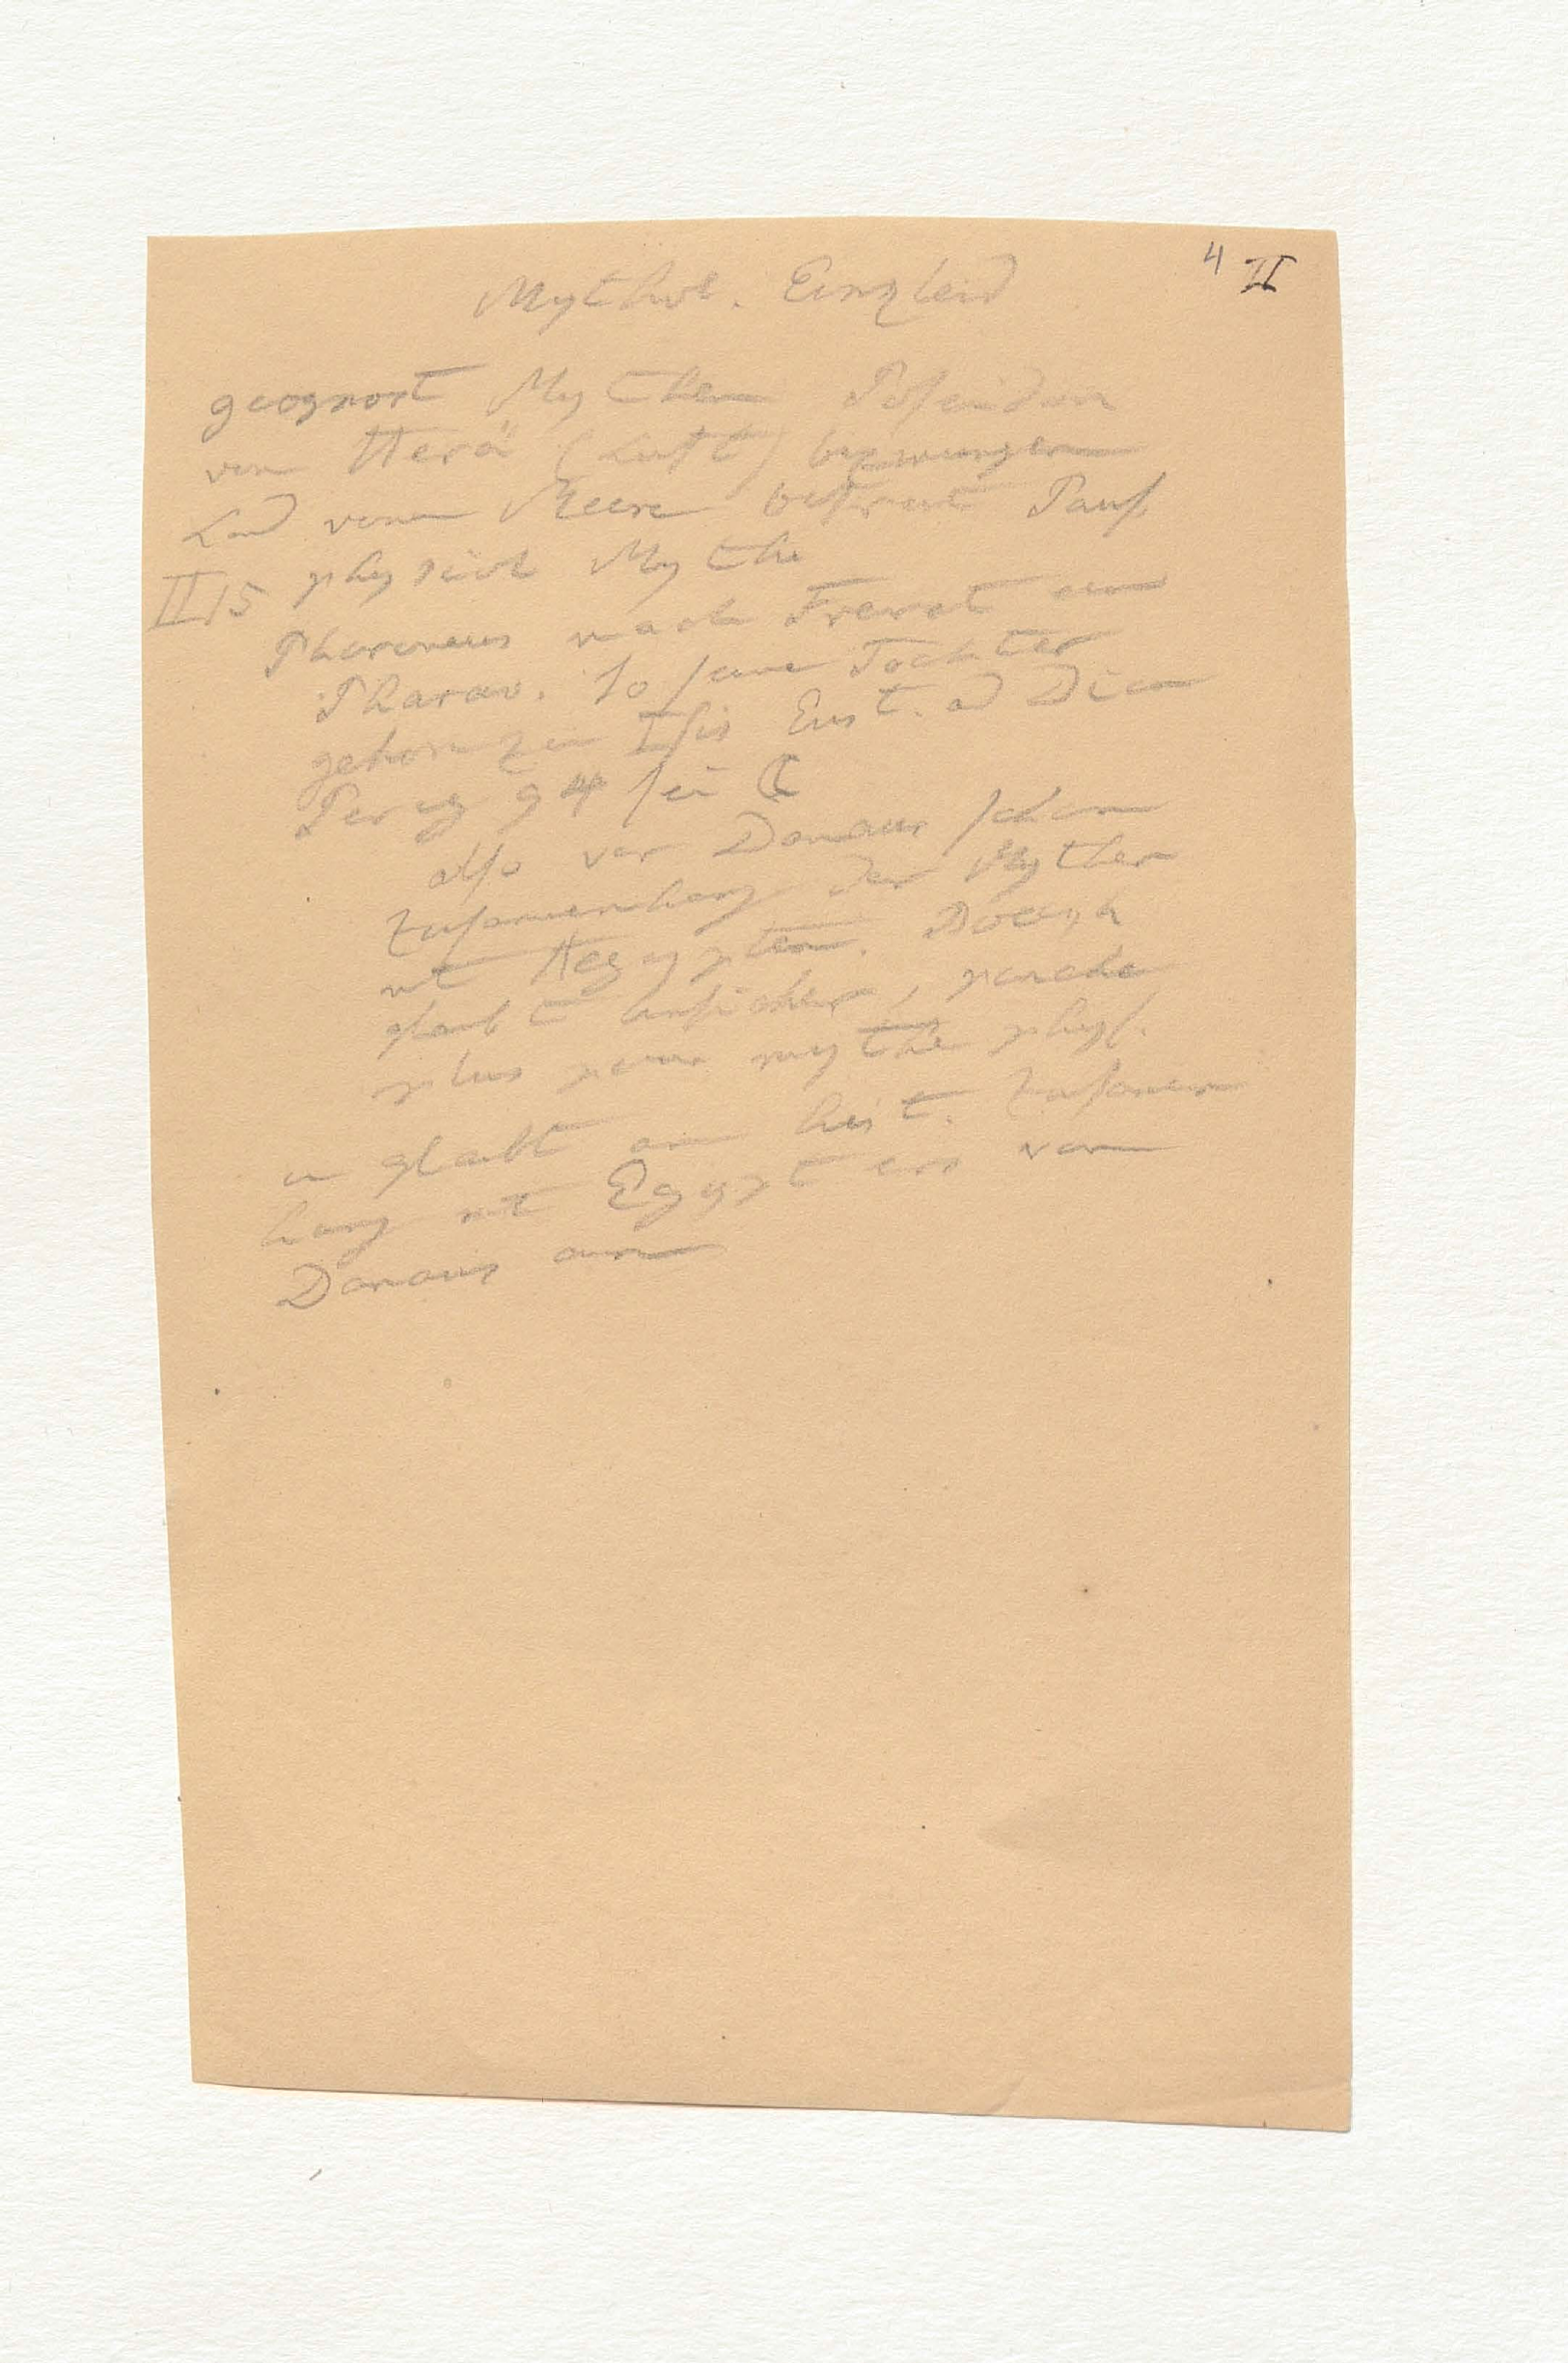 4 II
Mythol. Einkleid
geognost Mythen Poseidon
von Herä (Luft) bezwungen
Land vom Meere befreit Paus.
II 15 physical Mythe
Phoroneus nach Freret ein
Pharao. Io seine Tochter
gehörn zu Isis Eust. ad Dion
Perieg 94 sei ☾
also vor Danaus schon
Zusamenhang der Mythen
mt Aegypten.
glaubt unsicher,
plus mythe phys.
u glaubt an hist. Zusamen
hang mt Egypten von
Danaus an